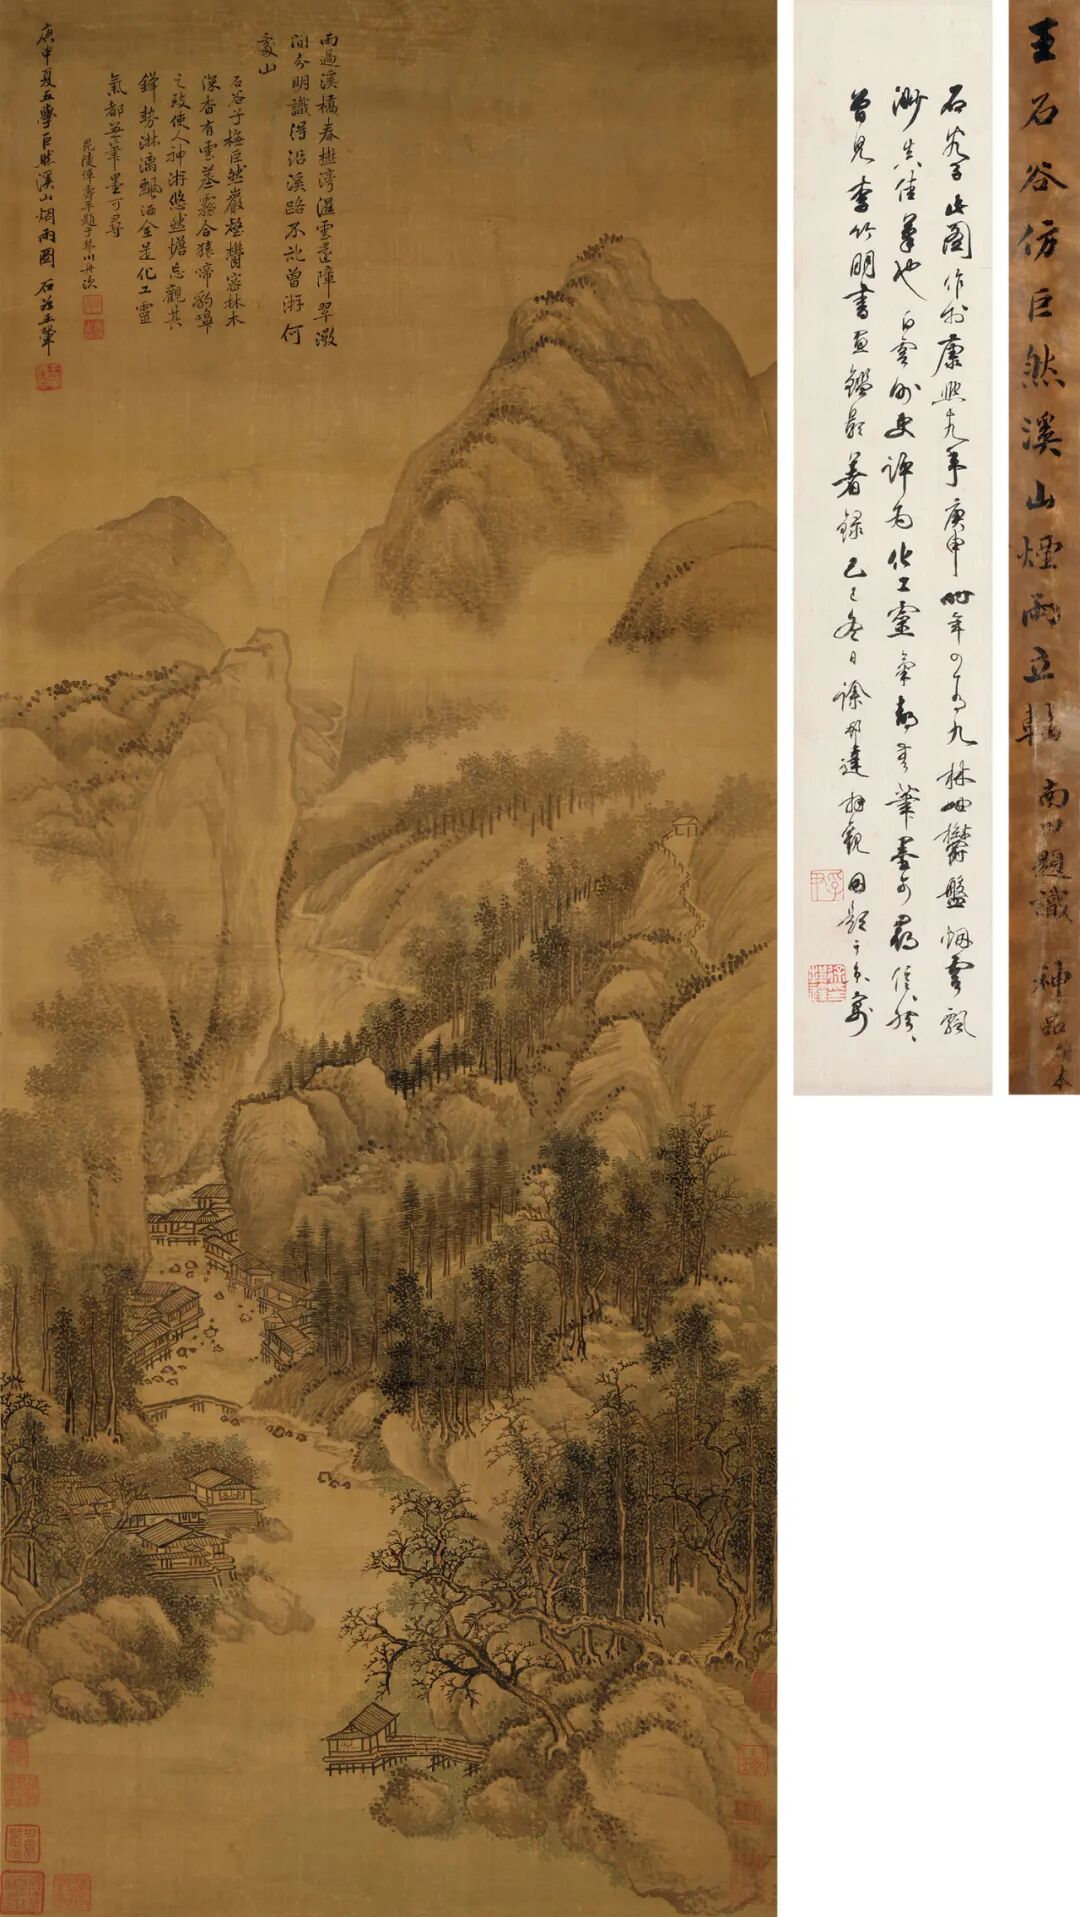 雨過溪橋春樾灣濕雲遮障翠微
間分明識得沿溪路不記曾游何
處山
石谷子橅巨然巖壑鬱密林木
深杳有雲蒸霧合猿啼豹嗥
之致使人神游悠然憺忘觀其
鋒勢淋漓飄洒全是化工靈
氣都無筆墨可尋
毘陵惲壽平題于琴川舟次
庚申夏五學巨然溪山烟雨圖 石谷王翬
王石谷仿巨然溪山煙雨立軸 南田題識 神品 本
石谷子此圖作於康熙十九年庚申時年四十有九林岫鬱盤烟雲飄
渺真佳筆也白雲外史評為化工靈氣都無筆墨可尋信然
曾見李竹朋書畫鑑影著錄己巳冬日徐邦達拜觀因題于京寓